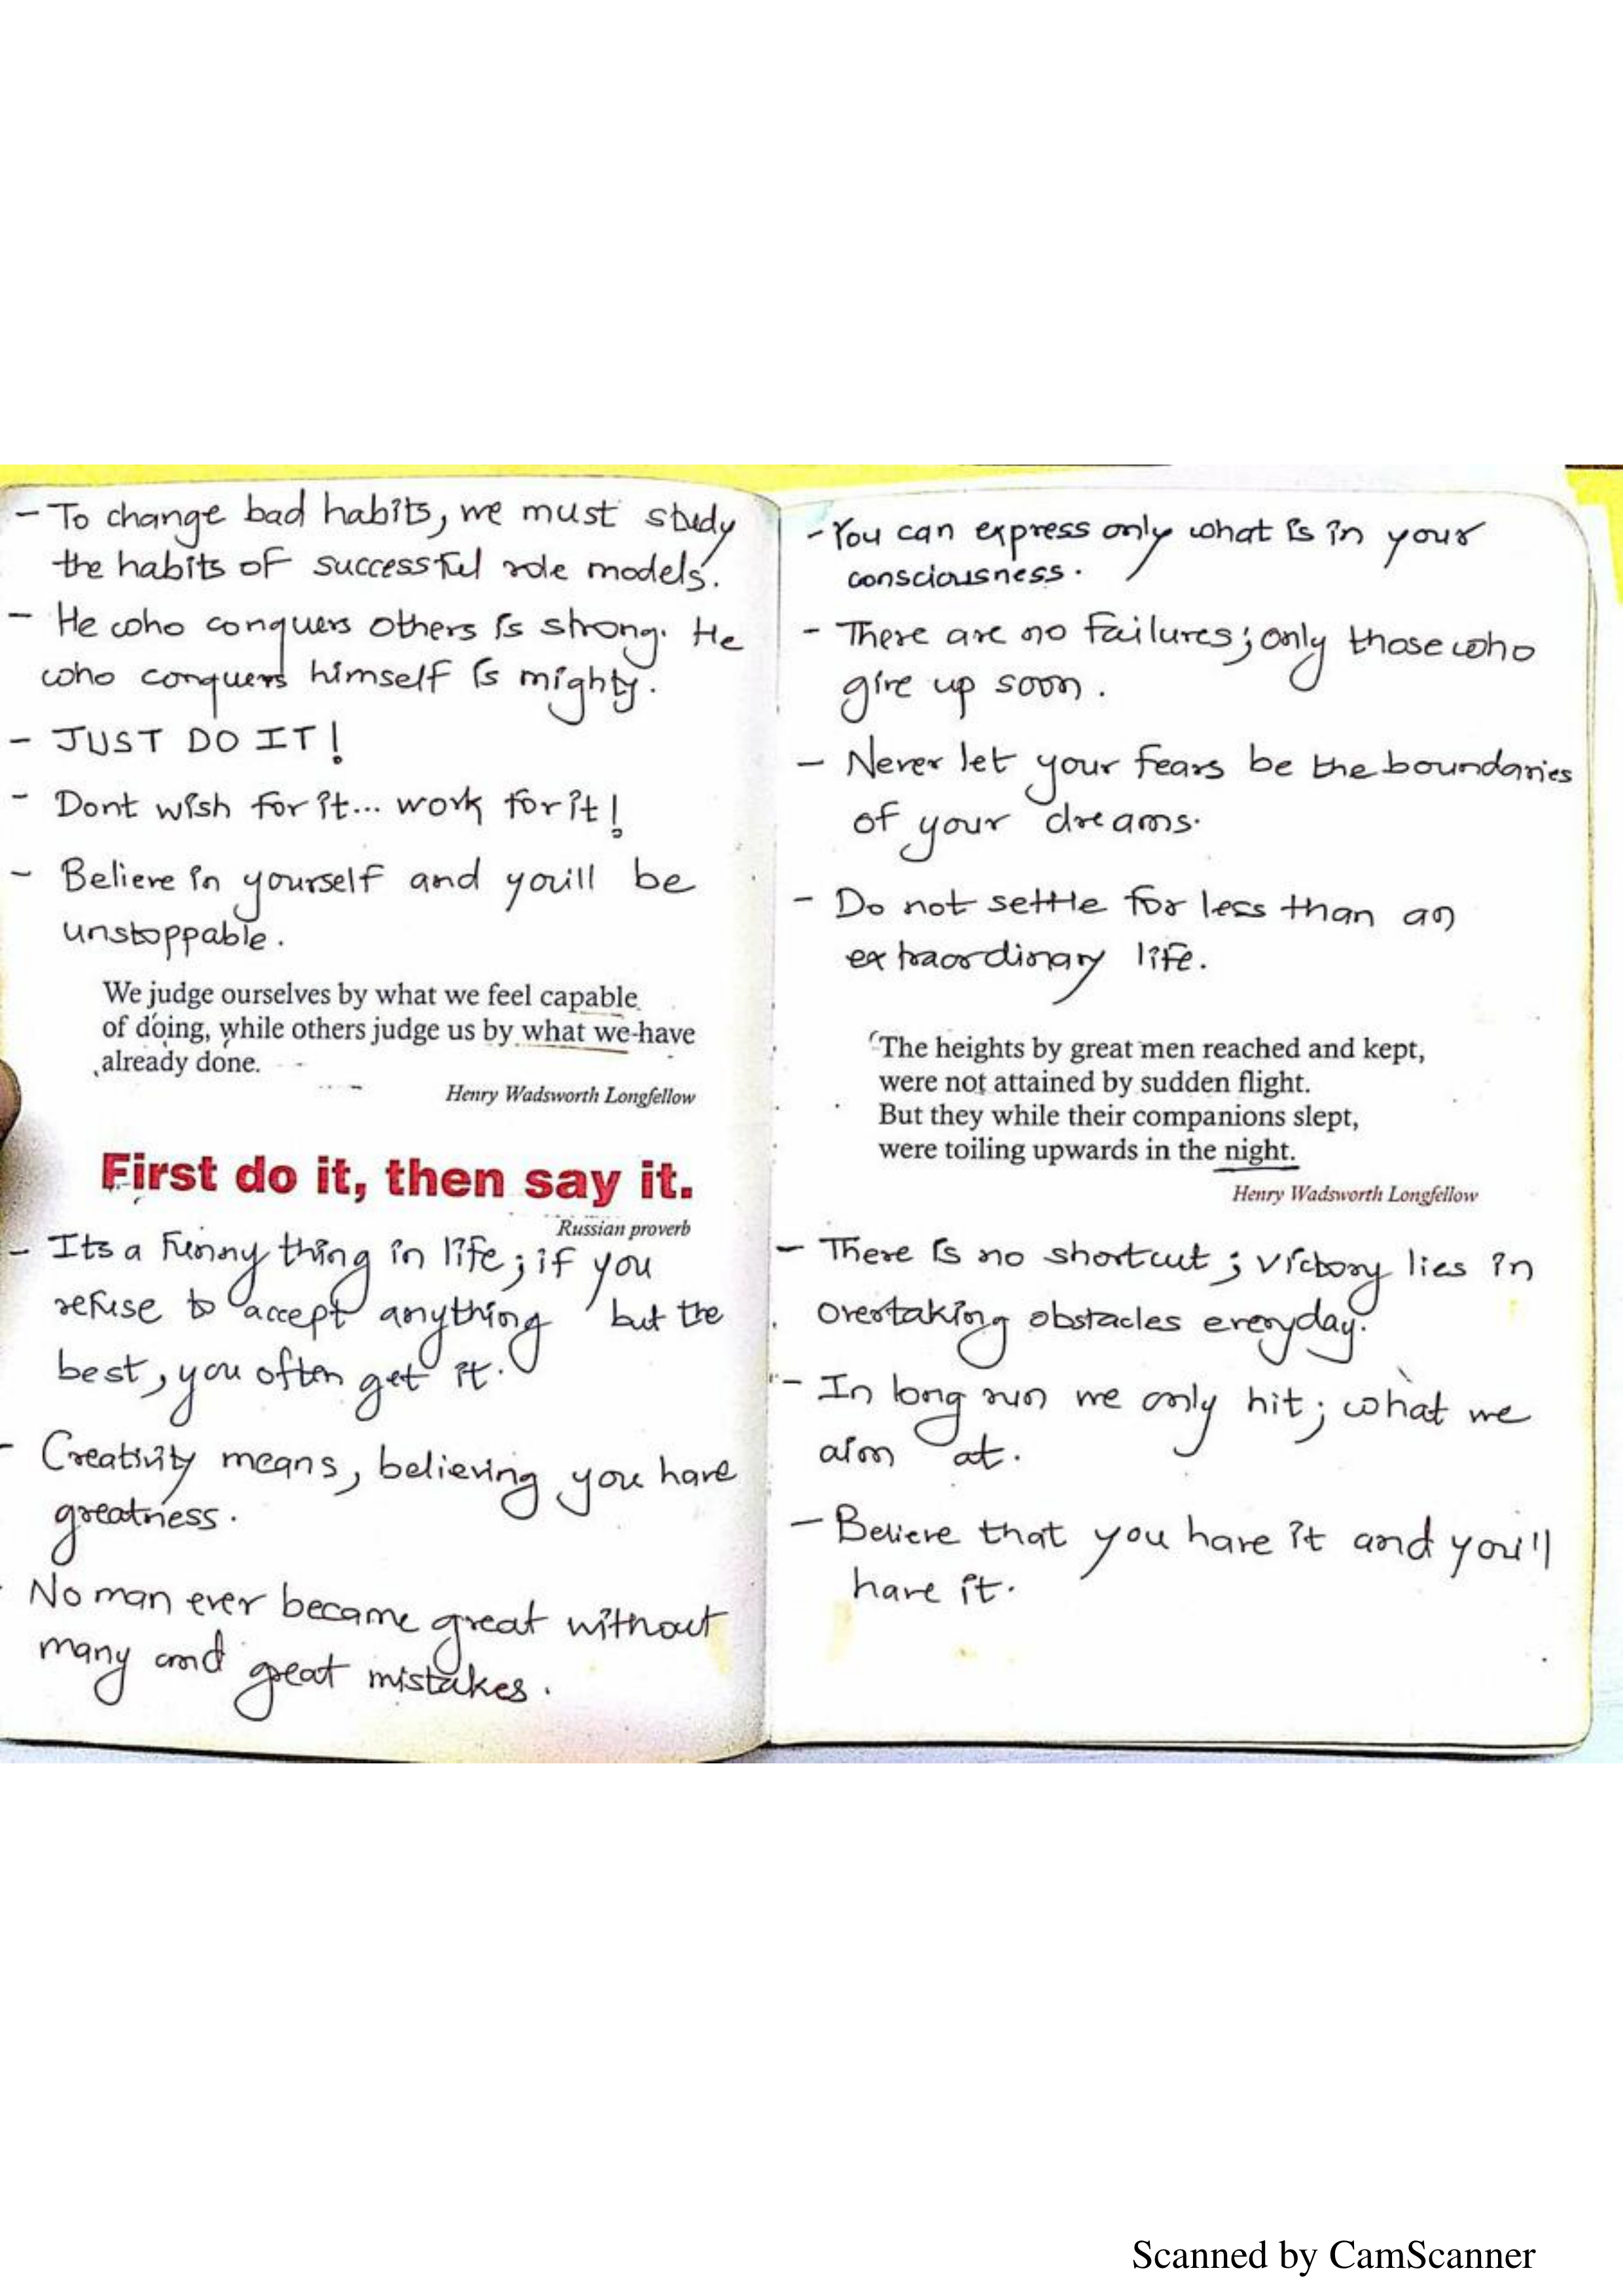 - To change bad habits, we must study
the habits of successful role models.
- He who conquers others is strong. He
who conquers himself is mighty.
- JUST DO IT!
- Dont wish for it... work for it!
- Believe in yourself and you'll be
unstoppable.
We judge ourselves by what we feel capable
of doing, while others judge us by what we have
already done.
Henry Wadsworth Longfellow
First do it, then say it.
Russian proverb
- Its a funny thing in life; if you
refuse to accept anything but the
best, you often get it.
- Creativity means, believing you have
greatness.
- No man ever became great without
many and great mistakes.
- You can express only what is in your
consciousness.
- There are no failures; only those who
give up soon.
- Never let your fears be the boundaries
of your dreams.
- Do not settle for less than an
extraordinary life.
The heights by great men reached and kept,
were not attained by sudden flight.
But they while their companions slept,
were toiling upwards in the night.
Henry Wadsworth Longfellow
- There is no shortcut; victory lies in
overtaking obstacles everyday.
- In long run we only hit; what we
aim at.
- Believe that you have it and you'll
have it.
Scanned by CamScanner